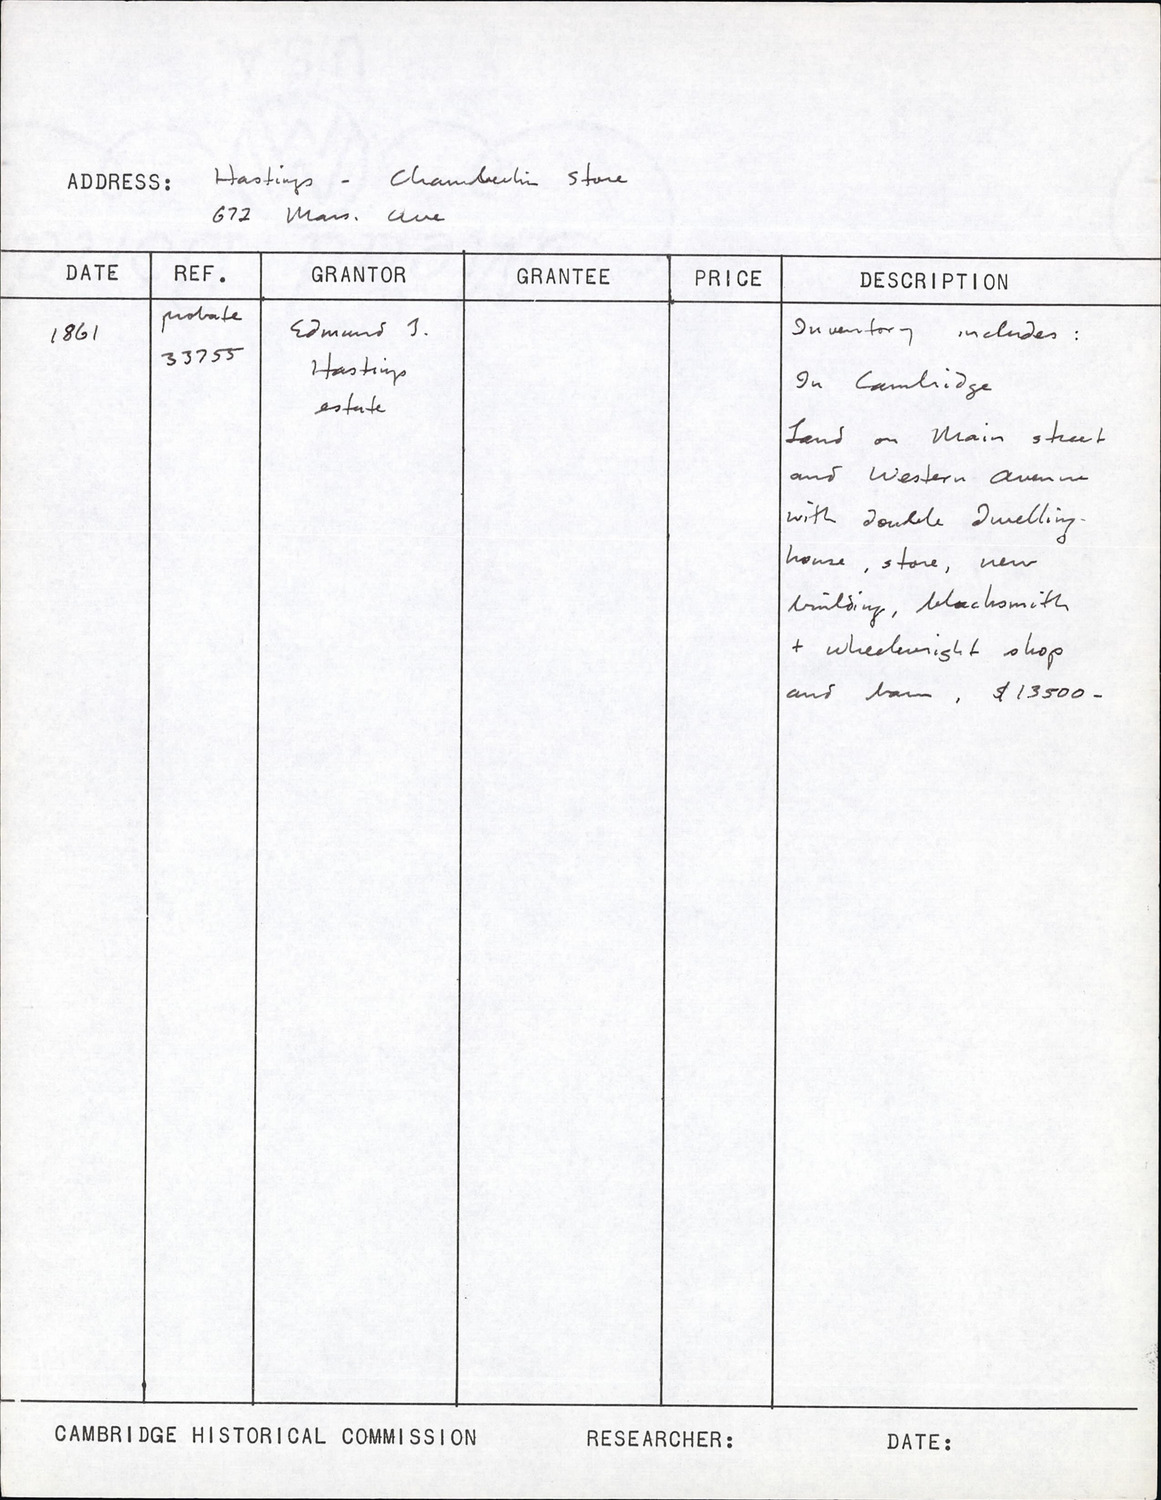 ADDRESS: Hastings - Chamberlin Store
672 Mass. Ave
DATE REF. GRANTOR GRANTEE PRICE DESCRIPTION
1861
probate
33755
Edmund T.
Hastings
estate
Inventory includes:
In Cambridge
Land on Main street
and Western Avenue
with double dwelling-
house, store, new
building, blacksmith
+ wheelwright shop
and barn, $13500-
CAMBRIDGE HISTORICAL COMMISSION RESEARCHER: DATE: